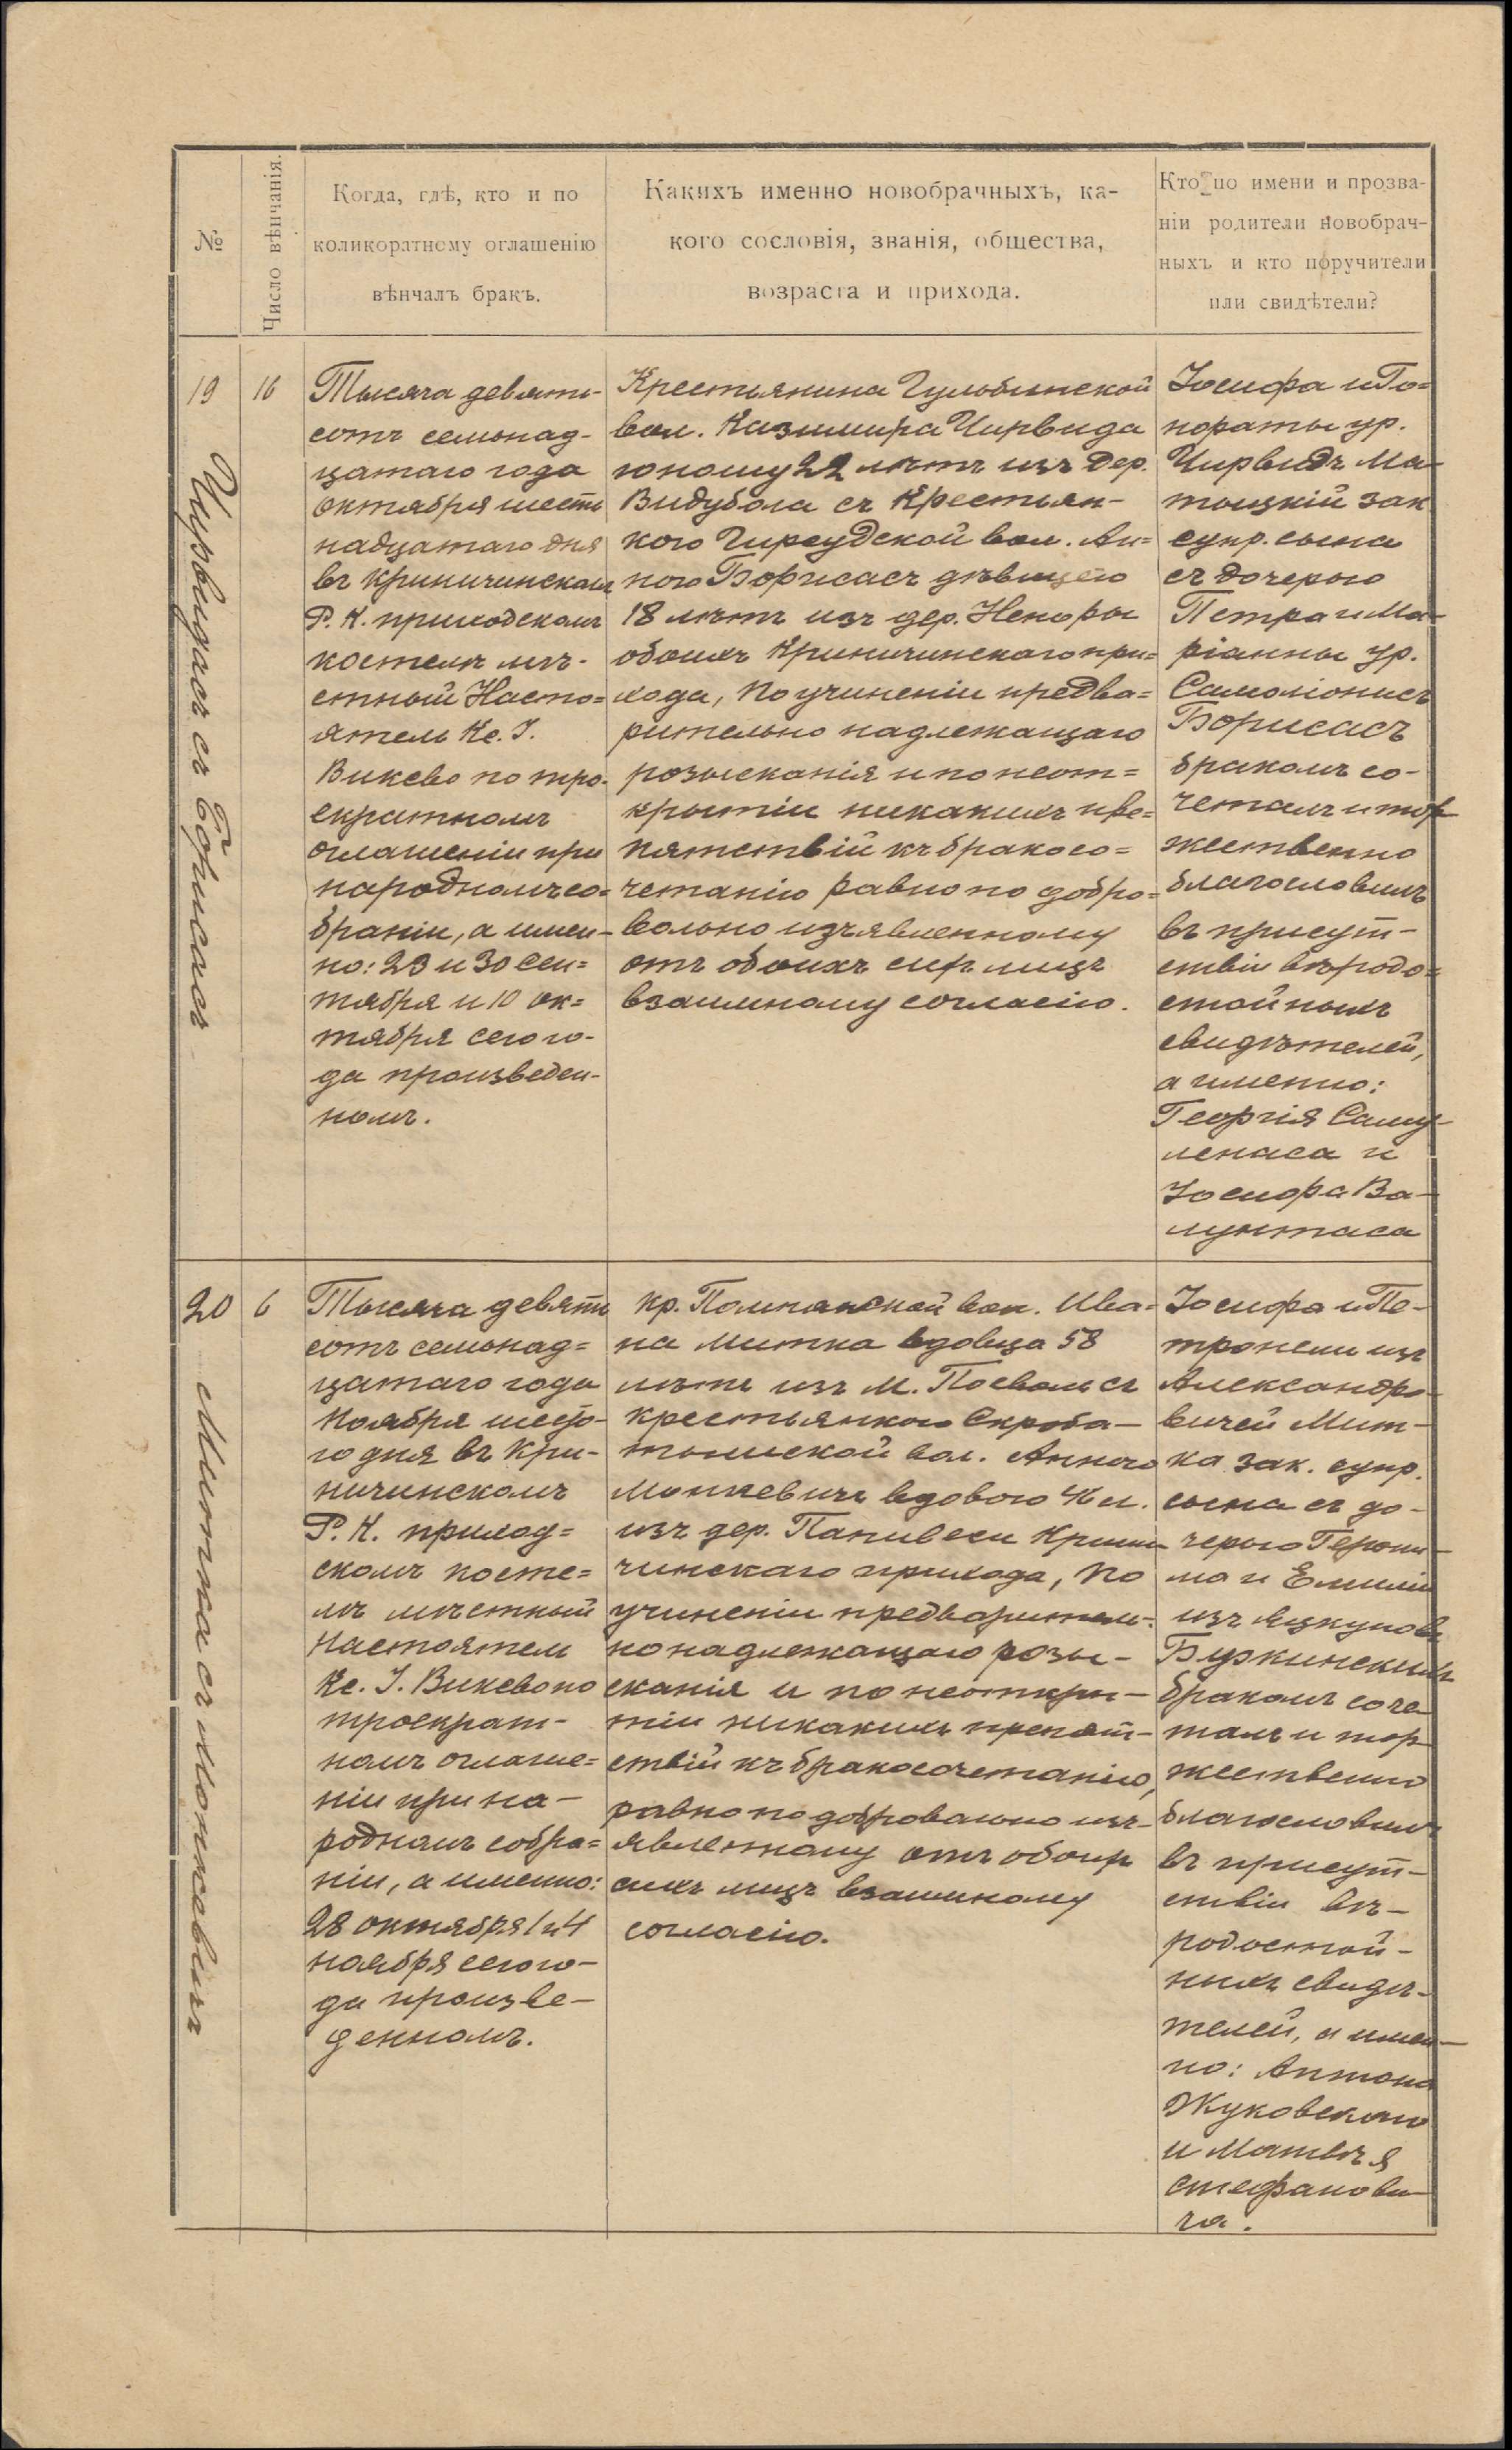 №
Число вѣнчанія.
Когда, гдѣ, кто и по
коликоратному оглашенію
вѣнчалъ бракъ.
Какихъ именно новобрачныхъ, ка-
кого сословія, званія, общества,
возраста и прихода.
Кто по имени и прозва-
ніи родители новобрач-
ныхъ и кто поручители
или свидѣтели?
19
Чирвидасъ съ Борисасъ
16
Тысяча девять-
сотъ семьнад-
цатаго года
Октября шесть
надцатаго дня
въ Криничинскомъ
Р. К. приходскомъ
костелѣ мѣ-
стный Насто=
ятель Кс. І.
Виксво по тро-
екратномъ
оглашеніи при
народномъ со=
браніи, а имен-
но: 23 и 30 Сен=
тября и 10 Ок=
тября сего го-
да произведен-
номъ.
Крестьянина Гульбинской
вол. Казимира Чирвида
юношу 22 лѣтъ изъ дер.
Видубола съ Крестьян-
кою Гирсудской вол. Ан=
ною Борисасъ дѣвицею
18 лѣтъ изъ дер.
обоихъ Криничинскаго при=
хода, по учиненіи предва=
рительно надлежащаго
розысканія и по неот=
крытіи никакихъ пре=
пятствій къ бракосо=
четанію равно по добро=
вольно изъявленному
отъ обоихъ сихъ лицъ
взаимному согласію.
Іосифа и Го=
нораты ур.
Чирвидъ Ма-
тыцкій зак
супр. сына
съ дочерью
Петра и Ма-
ріанны ур.
Самоліонисъ
Борисасъ
бракомъ со-
четалъ и тор
жественно
благословилъ
въ присут-
ствіи вѣродо=
стойныхъ
свидѣтелей,
а именно:
Георгія Саму-
ленаса и
Іосифа Ва-
лунтаса
20
Митка съ Монкевичъ
6
Тысяча девять
сотъ семьнад=
цатаго года
Ноября шесто-
го дня въ Кри-
ничинскомъ
Р. К. приход=
скомъ косте=
лѣ мѣстный
Настоятель
Кс. І. Виксво по
троекрат-
номъ оглаше=
ніи при на-
родномъ собра=
ніи, а именно:
28 октября 1 и 4
ноября сего го-
да произве-
денномъ.
кр. Помпянской вол. Ива=
на Митка вдовца 58
лѣтъ изъ м. Поеволь съ
крестьянкою Скроба-
тышской вол. Анною
Монкевичъ вдовою 4
изъ дер. Панивеси Крини-
чинскаго прихода, по
учиненіи предваритель-
но надлежащаго розы-
сканія и по неоткры-
тіи никакихъ препят-
ствій къ бракосочетанію,
равно по добровольно изъ-
явленному отъ обоихъ
сихъ лицъ взаимному
согласію.
Іосифа и Пе-
тронели изъ
Александро-
вичей Мит-
ка зак. супр.
сына съ до-
черью Герони-
ма и Емиліи
изъ Яцкуновъ
Буркинскихъ
бракомъ соче-
талъ и тор
жественно
благословилъ
въ присут-
ствіи вѣ-
родостой-
ныхъ свидѣ-
телей, а имен-
но: Антона
Жуковскаго
и Матвѣя
Стефанови-
ча.